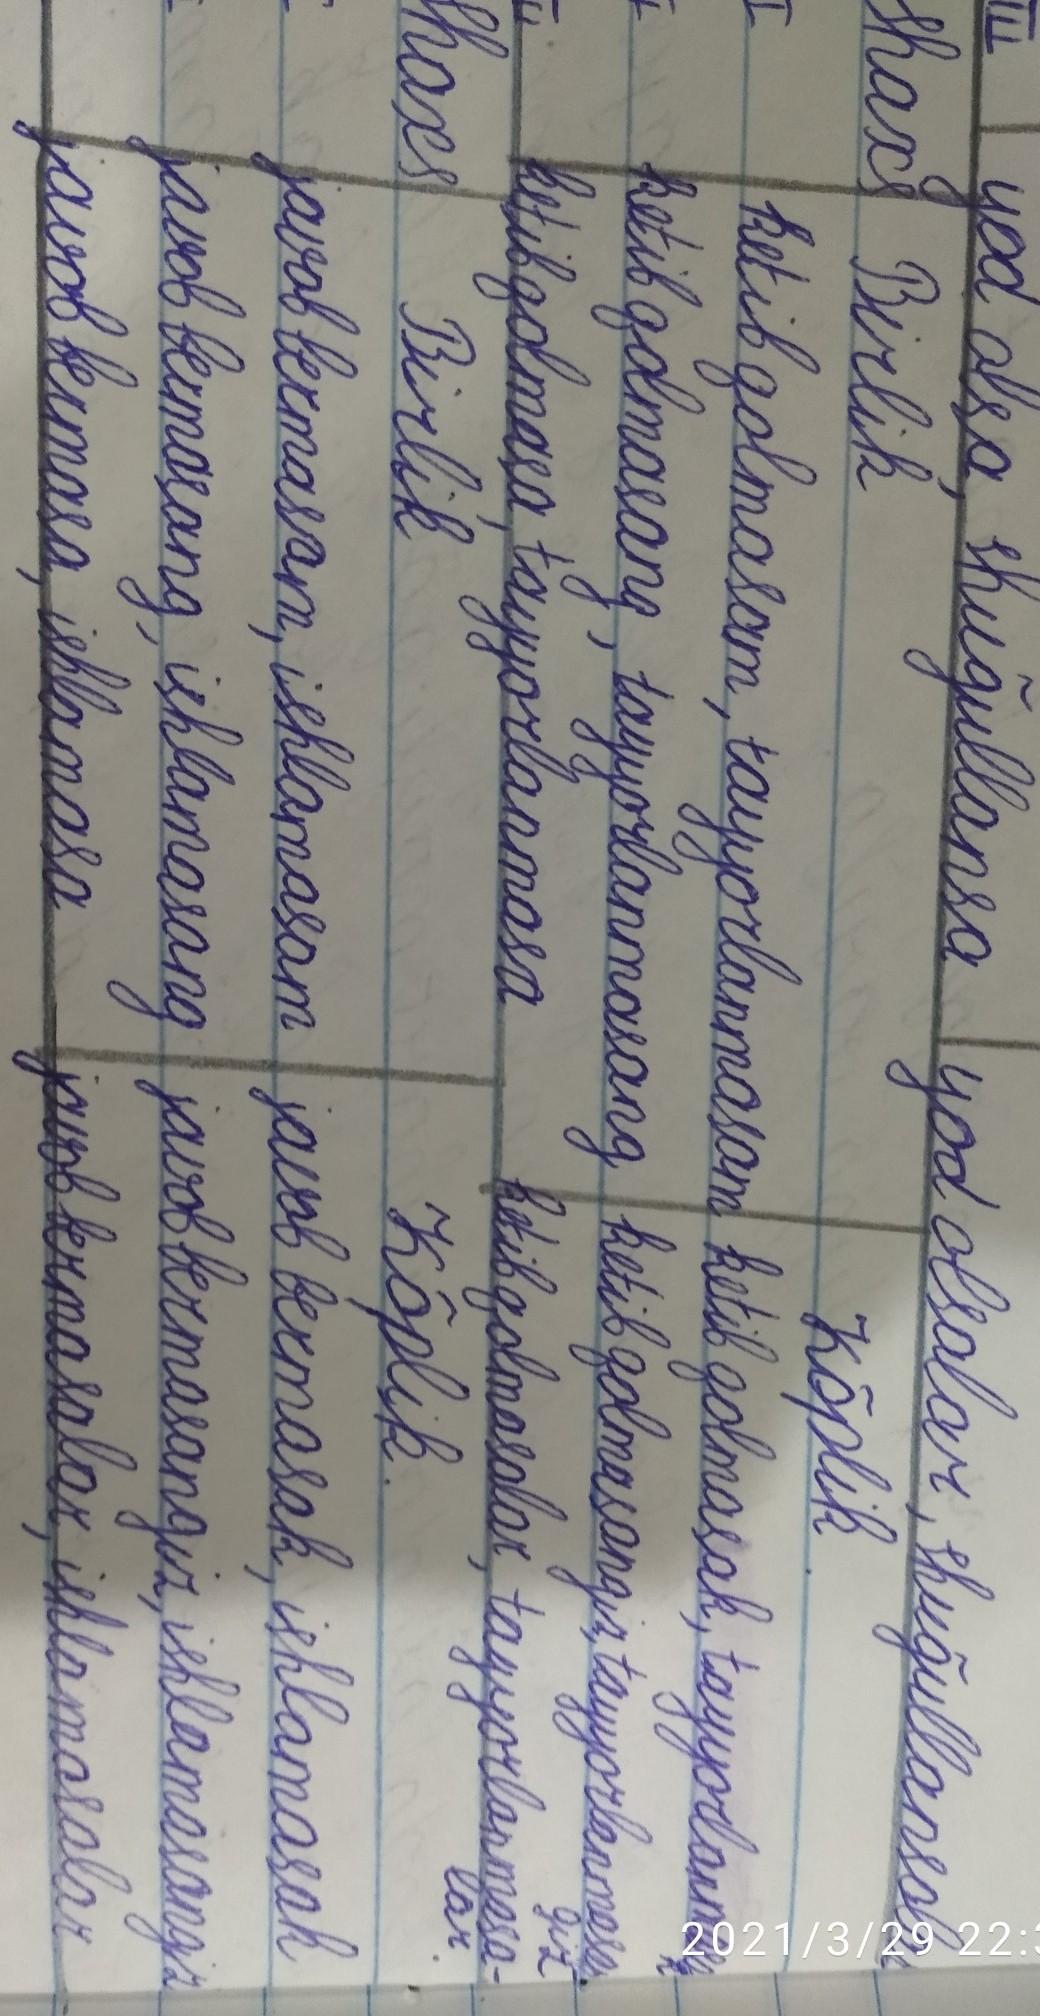 III yod olsa, shuğullansa yod olsalar, shuğullansalar
Shaxs Birlik Kõplik
I ketib qolmasam, tayyorlanmasam ketib qolmasak, tayyorlanma
ketib qolmasang, tayyorlanmasang ketib qolmasangiz, tayyorlanmasan
giz
ketib qolmasa, tayyorlanmasa ketib qolmasalar, tayyorlanmasa-
lar.
Shaxs Birlik Kõplik.
javob bermasam, ishlamasam javob bermasak, ishlamasak
javob bermasang, ishlamasang javob bermasangiz, ishlamasangiz
javob bermasa, ishlamasa javob bermasalar, ishlamasalar
2021/3/29 22:3